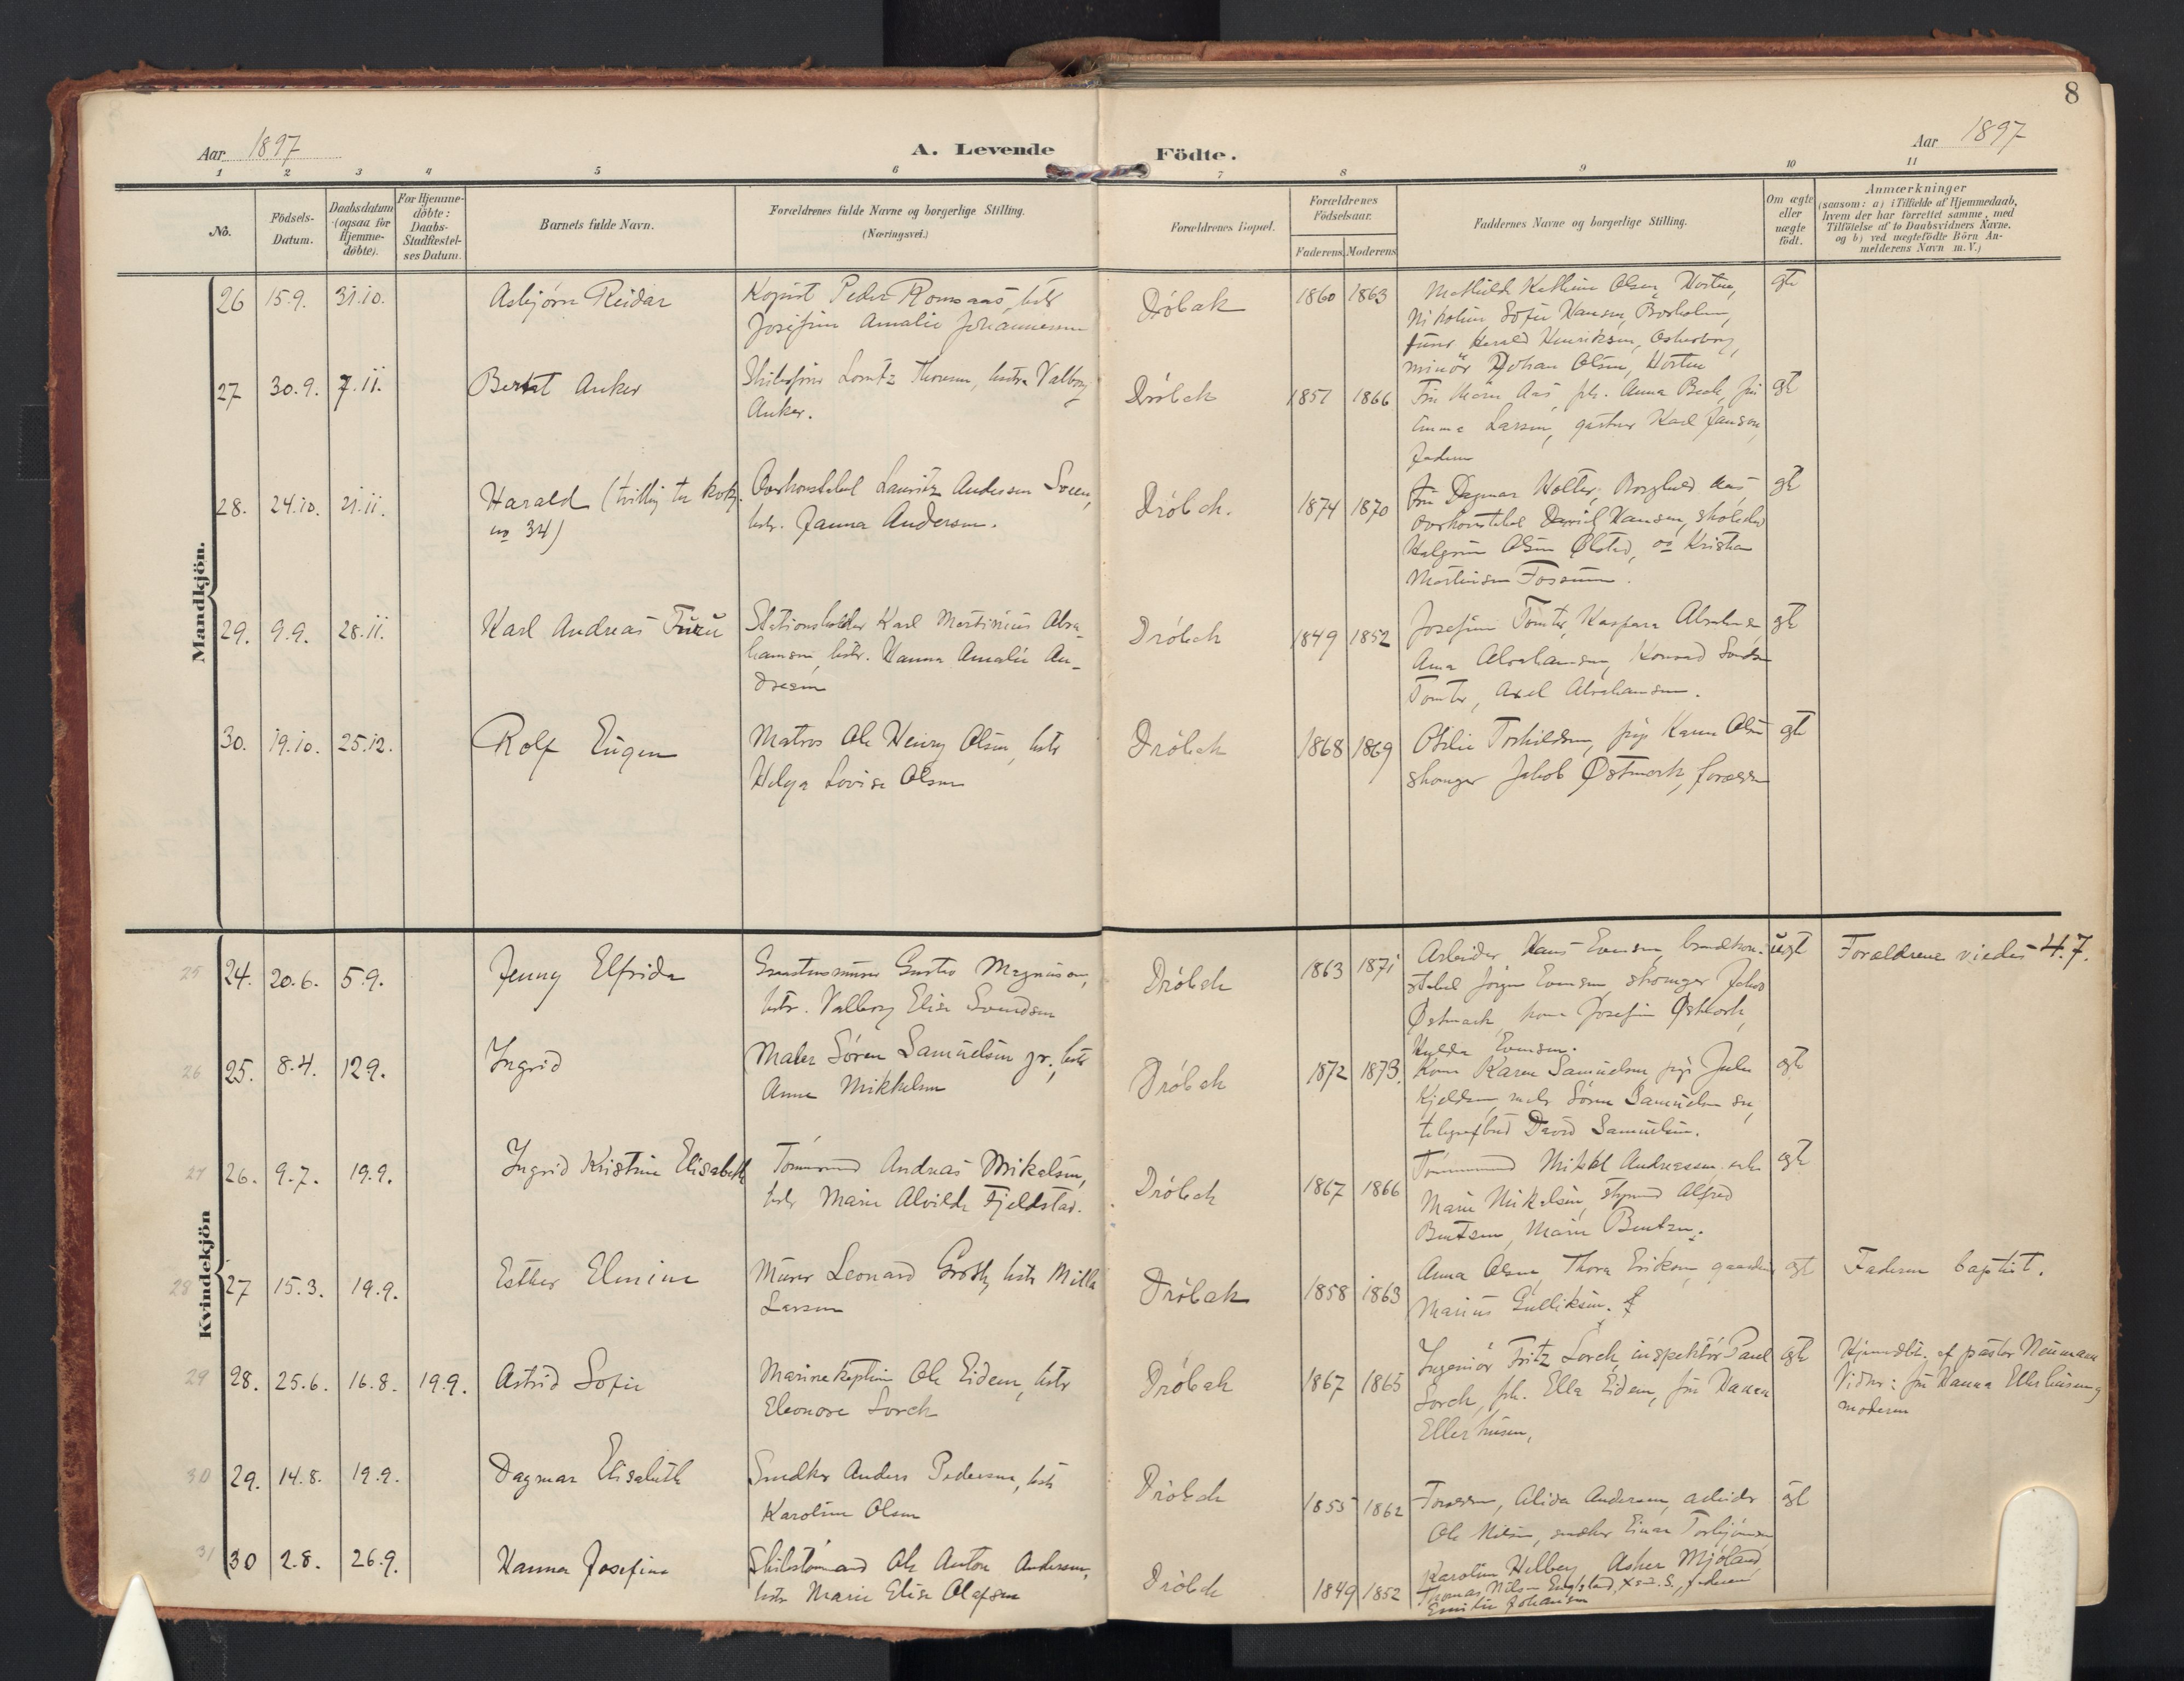 8
Aar 1897
A. Levende
Födte.
Aar 1897
1 2 3 4 5 6 7 8 9 10 11
No.
Födsels-Datum.
Daabsdatum (ogsaa for Hjemme-döbte).
For Hjemme-döbte: Daabs-Stadfæstel-ses Datum.
Barnets fulde Navn.
Forældrenes fulde Navne og borgerlige Stilling.
(Næringsvei.)
Forældrenes Bopæl.
Forældrenes Födselsaar.
Faderens. Moderens
Faddernes Navne og borgerlige Stilling.
Om ægte eller uægte födt.
Anmærkninger
(saasom: a) i Tilfælde af Hjemmedaab,
hvem der har forrettet samme, med
Tilföielse af to Daabsvidners Navne.
og b) ved uægtefödte Börn An-
melderens Navn m. V.)
Mandkjön.
26 15.9. 31.10. Asbjörn Reidar
Kopist Peder Romsaas, hstr
Josefine Amalie Johannesen
Dröbak 1860 1863
Mathilde Kathinae Olsen, Horten,
Nikoline Sofie Hansen, Borholm,
Harald Henriksen, Oskarborg,
minör Johan Olsen, Horten
gte
27 30.9. 7.11. Berat Anker
Skibsförer Lorntz Thoresen, hustru Valborg
Anker.
Dröbak 1857 1866
Fru Aas, frk. Anna Beck, fru
Emma Larsen, gartner Karl Jansen,
Faderen
gte
28. 24.10. 21.11. Harald (tvilling til kvk.
no 34)
Overkonstabel Lauritz Andersen Sveen,
hstr. Janna Andersen.
Dröbak. 1874 1870
Fru Dagmar Holter, Borghild Aas
overkonstabel David Hansen,
Halgrim Olsen Ølsted, og Kristian
Martinsen Fossum.
gte
29. 9.9. 28.11. Karl Andreas Furu
Stationsholder Karl Martinius Abra-
hamsen, hstr. Hanna Amalie An-
dresen
Dröbak 1849 1852
Josefine Tomter, Kaspara Abrahamsen
Anna Abrahamsen, Konrad
Tomter, Axel Abrahamsen.
gte
30. 19.10. 25.12. Rolf Eugen
Matros Ole Henry Olsen, hstr
Helga Lovise Olsen
Dröbak 1868 1869
Otilie Torkildsen, pige Karen Olsen
skomager Jakob Østmork, forældrene
gte
Kvindekjön
25 24. 20.6. 5.9. Jenny Elfrida
Gustav Magnuson,
hstr. Valborg Elise Svendsen
Dröbak 1863 1871
Arbeider Hans Evensen, brandkon-
stabel Jörgen Evensen, skomager Jakob
Østmark, kone Josefine Østmork,
Hulda Evensen.
uegte
Forældrene viedes 4.7.
26 25. 8.4. 12.9. Ingrid
Maler Sören Samuelsen jr., hstr
Anna Mikkelsen
Dröbak 1872 1873.
Kone Karen Samuelsen, pige Julie
Kjeldsen, maler Sören Samuelsen sen,
telegrafbud David Samuelsen.
gte
27 26. 9.7. 19.9. Ingrid Kristine Elisabeth
Tömmermand Andreas Mikalsen,
hstr Marie Alvilde Fjeldstad.
Dröbak 1867 1866
Tömmermand Mikal Andreassen, enke
Marie Mikalsen, styrmand Alfred
Berntsen, Marie Berntsen.
gte
28 27 15.3. 19.9. Esther Elmine
Murer Leonard Groth, hstr Milla
Larsen
Dröbak 1858 1863
Anna Olsen, Thora Eriksen, gaardm
Marius Gulliksen.
gte
Faderen baptist.
29 28. 25.6. 16.8. 19.9. Astrid Sofie
Marinekaptein Ole Eidem, hstr
Eleonore Lorck
Dröbak 1867 1865
Ingeniör Fritz Lorck, inspektör Paul
Lorck, frk. Ella Eidem, fru Hanna
Ellerhusen,
gte
Hjemdbt. af pastor Neumann
Vidner: fru Hanna Ellerhusen og
moderen
30 29. 14.8. 19.9. Dagmar Elisabeth
Snedker Anders Pedersen, hstr
Karoline Olsen
Dröbak 1855 1862
Forældrene, Alida Andersen, arbeider
Ole Nilsen, snedker Einar Torbjörnsen
gte
31 30 2.8. 26.9. Hanna Josefine
Skibstömmermand Ole Anton Andersen,
hstr Marie Elise Olafsen
Dröbak 1849 1852
Karoline Helberg, Asker Mjöland
Thomas Nilsen Engstad, faderen
Emilie Johansen